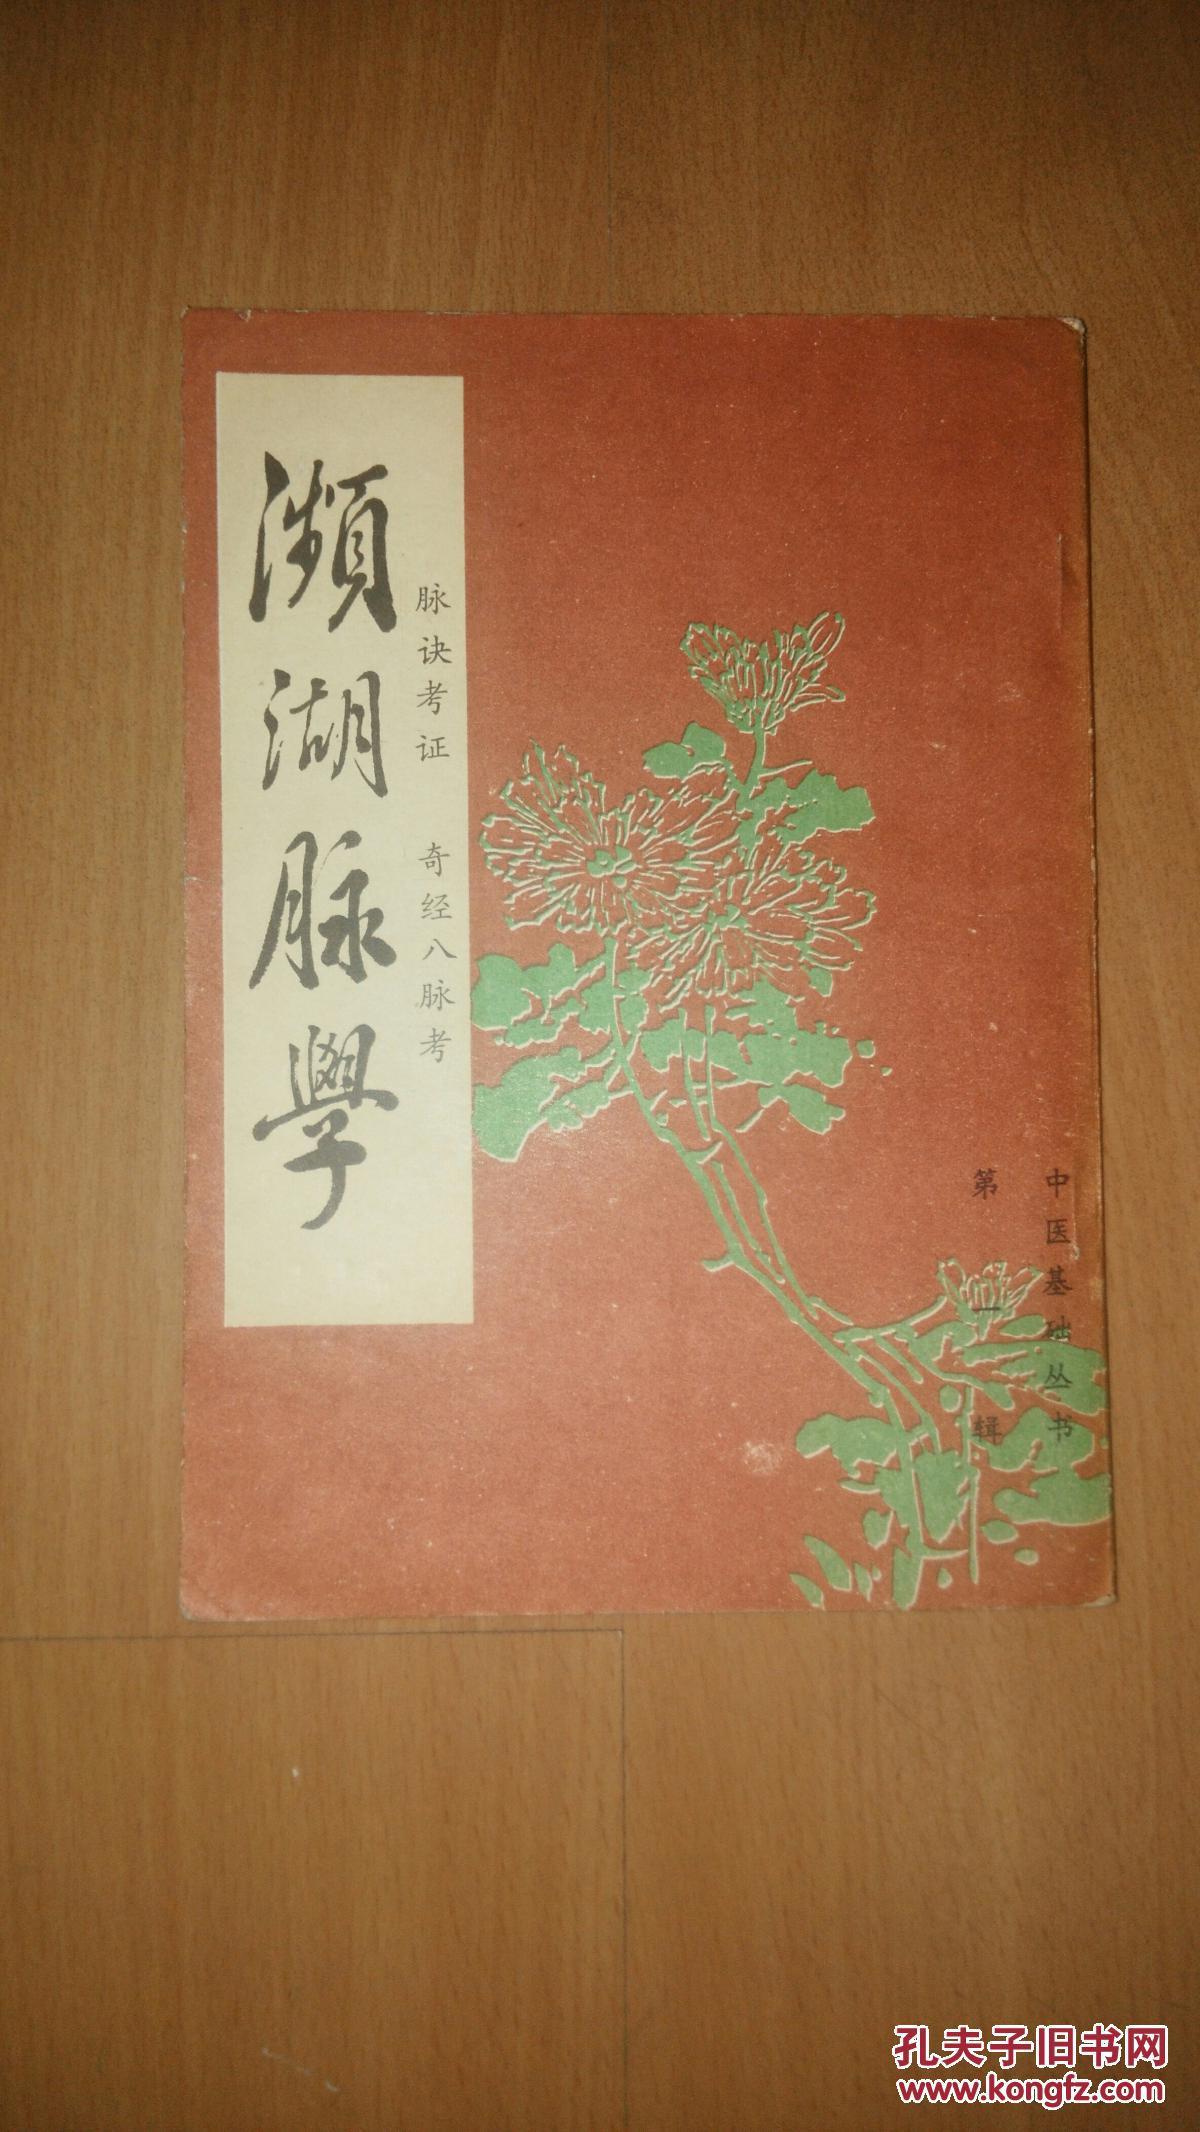 中医基础丛书
第一辑
脉诀考证 奇经八脉考
瀕湖脉學
孔夫子旧书网
www.kongfz.com